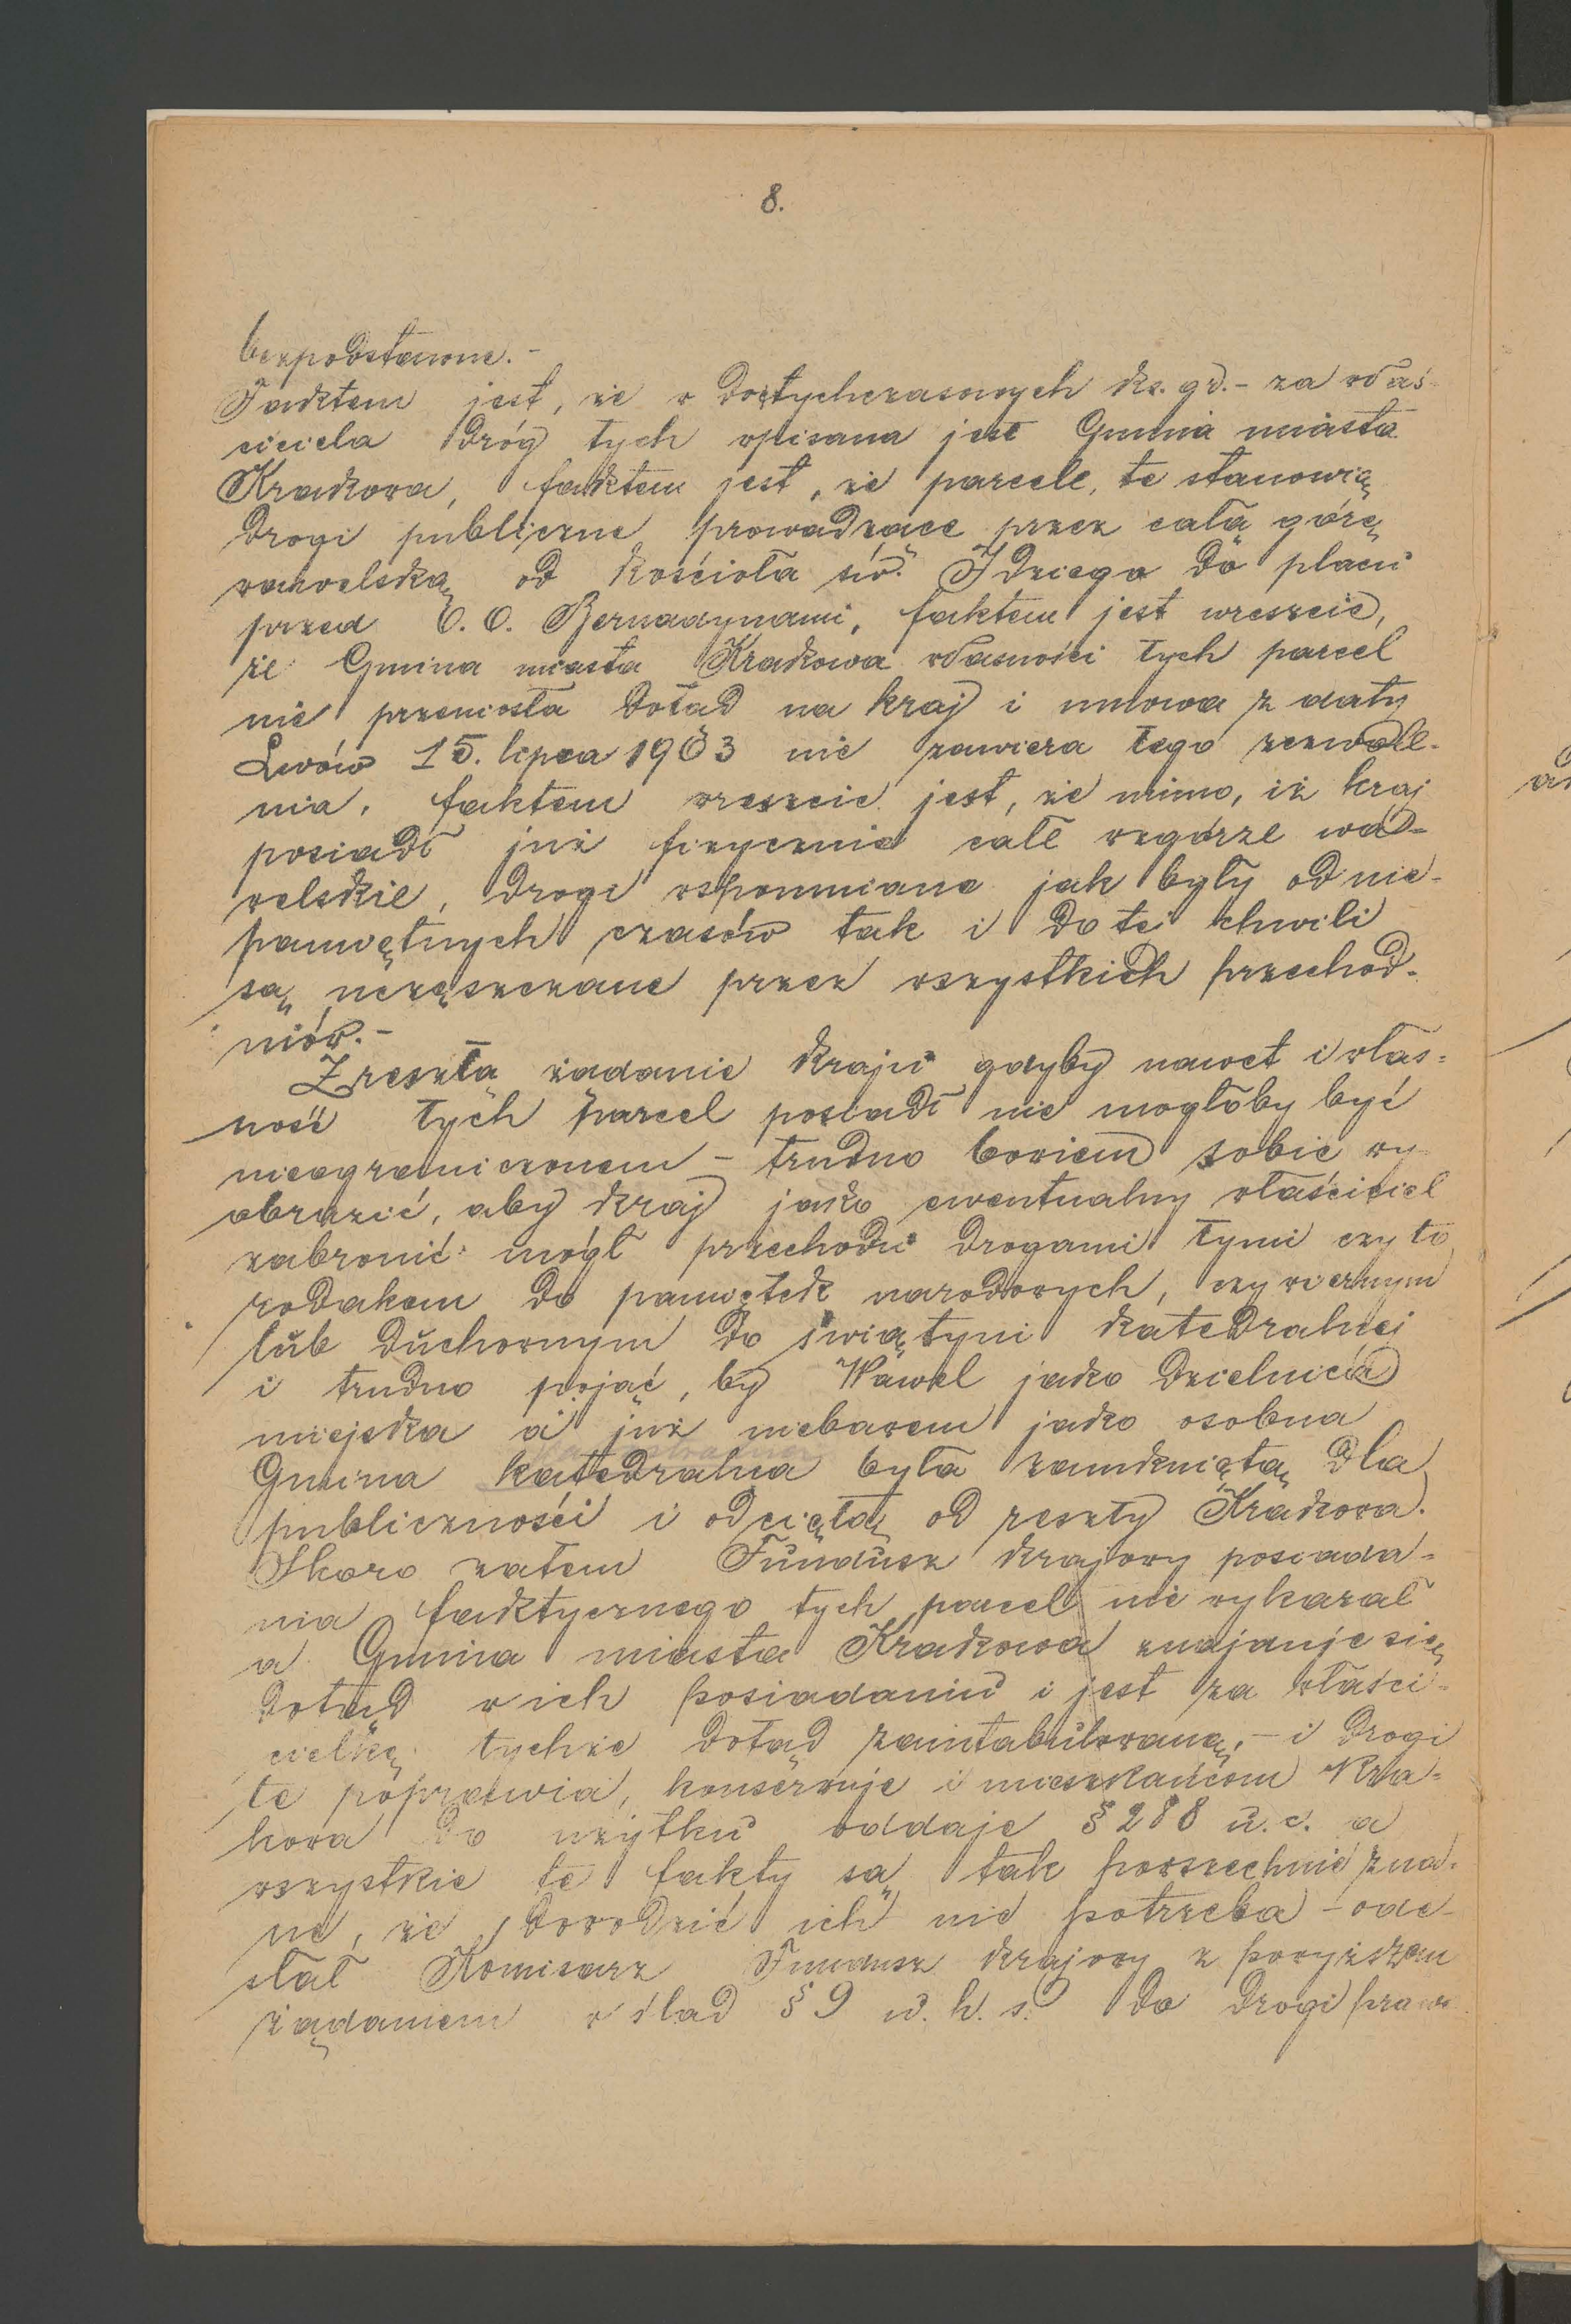 8.
bezpodstawne. -
Faktem jest, że w dotychczasowych ks. gr. - za właś-
ciciela dróg tych wpisana jest Gmina miasta
Krakowa, faktem jest, że parcele, te stanowią
drogi publiczne prowadzące przez całą górę
wawelską od kościoła św. Idziego do placu
przed O. O. Bernadynami, faktem jest wreszcie,
że Gmina miasta Krakowa własności tych parcel
nie przeniosła dotąd na kraj i umowa z daty
Lwów 15. lipca 1903 nie zawiera tego zezwole-
nia, faktem wreszcie jest, że mimo, iż kraj
posiadł już fizycznie całe wzgórze wa-
welskie, drogi wspomniane jak były od nie-
pamiętnych czasów tak i do tej chwili
są uczęszczane przez wszystkich przechod-
niów. -
Zresztą żądanie kraju gdyby nawet i włas-
ność tych parcel posiadł nie mogłoby być
nieograniczonem - trudno bowiem sobie wy
obrazić, aby kraj jako ewentualny właściciel
zabronić mógł przechodu drogami tymi czy to
rodakom do pamiątek narodowych, czy wiernym
lub duchownym do świątyni katedralnej
i trudno pojąć, by Wawel jako dzielnica
miejska a już niebawem jako osobna
Gmina katedralna była zamkniętą dla
publiczności i odciętą od reszty Krakowa.
Skoro zatem Fundusz krajowy posiada-
nia faktycznego tych parcel nie wykazał
a Gmina miasta Krakowa znajduje się
dotąd w ich posiadaniu i jest za właści-
cielkę tychże dotąd zaintabulowaną, - i drogi
te poprawia, konserwuje i mieszkańcom Kra-
kowa do użytku oddaje § 288 u. c. a
wszystkie te fakty są tak powszechnie zna-
ne, że dowodzić ich nie potrzeba - ode-
słał Komisarz Fundusz krajowy z powyższem
żądaniem w ślad § 9 u. h. s. do drogi praw